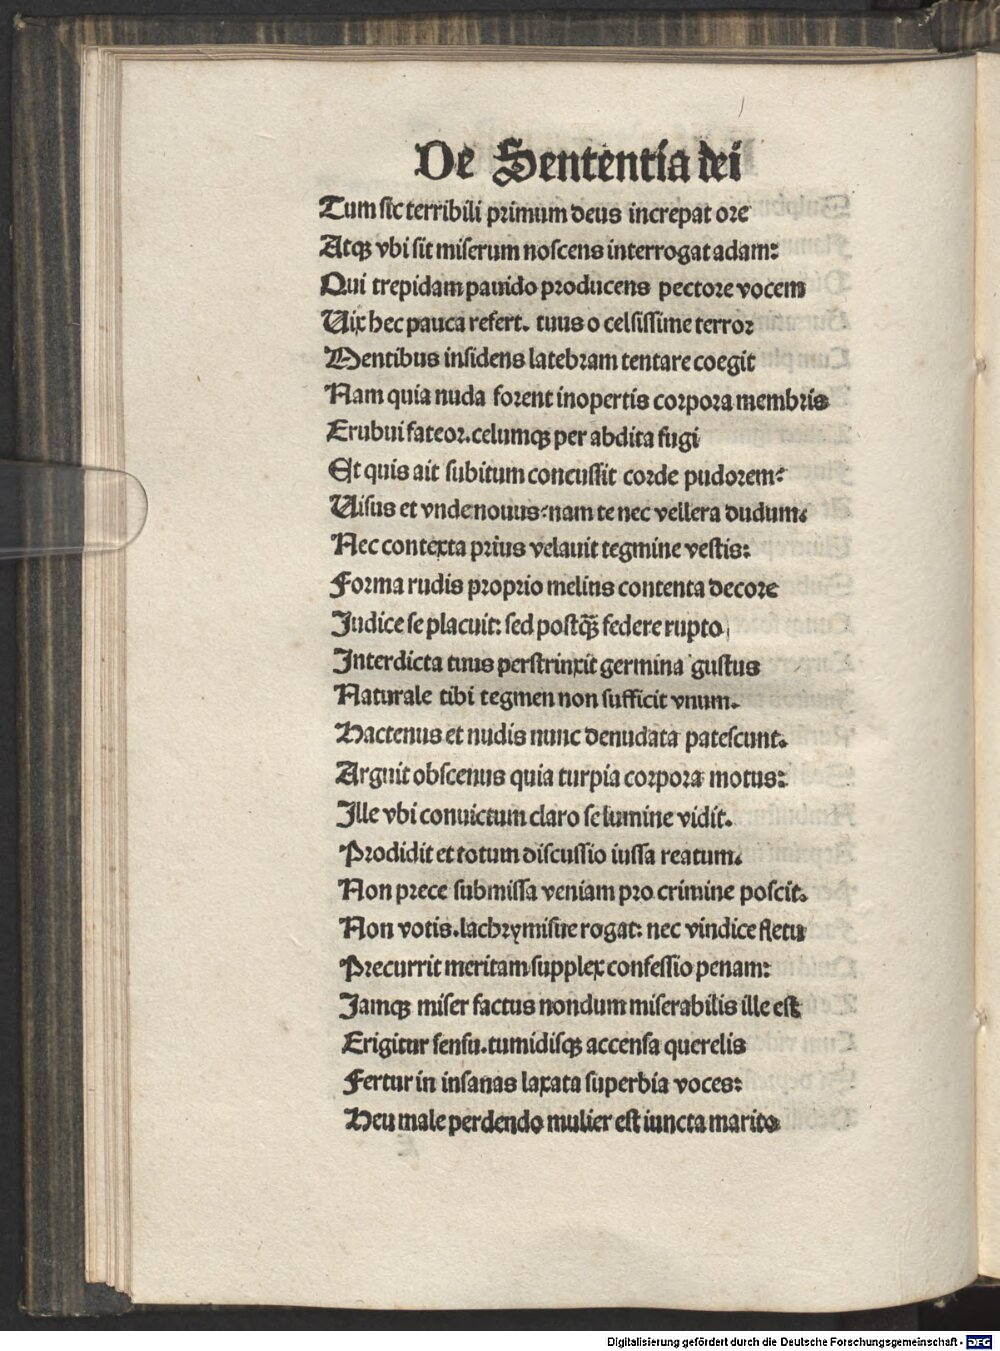 De Sententia dei
Tum sic terribili primum deus increpat ore
Atqꝫ vbi sit miserum noscens interrogat adam:
Qui trepidam pauido producens pectore vocem
Uix hec pauca refert. tuus o celsissime terror
Mentibus insidens latebram tentare coegit
Nam quia nuda forent inopertis corpora membris
Erubui fateor. celumqꝫ per abdita fugi
Et quis ait subitum concussit corde pudorem:
Uisus et vnde nouus: nam te nec vellera dudum.
Nec contexta prius velauit tegmine vestis:
Forma rudis proprio melius contenta decore
Judice se placuit: sed postq̃ꝫ federe rupto
Interdicta tuus perstrinxit germina gustus
Naturale tibi tegmen non sufficit vnum.
Hactenus et nudis nunc denudata patescunt.
Arguit obscenus quia turpia corpora motus:
Ille vbi conuictum claro se lumine vidit.
Prodidit et totum discussio iussa reatum.
Non prece submissa veniam pro crimine poscit.
Non votis. lachrymisue rogat: nec vindice fletu
Precurrit meritam supplex confessio penam:
Jamqꝫ miser factus nondum miserabilis ille est
Erigitur sensu. tumidisqꝫ accensa querelis
Fertur in insanas laxata superbia voces:
Heu male perdendo mulier est iuncta marito
Digitalisierung gefördert durch die Deutsche Forschungsgemeinschaft - DFG